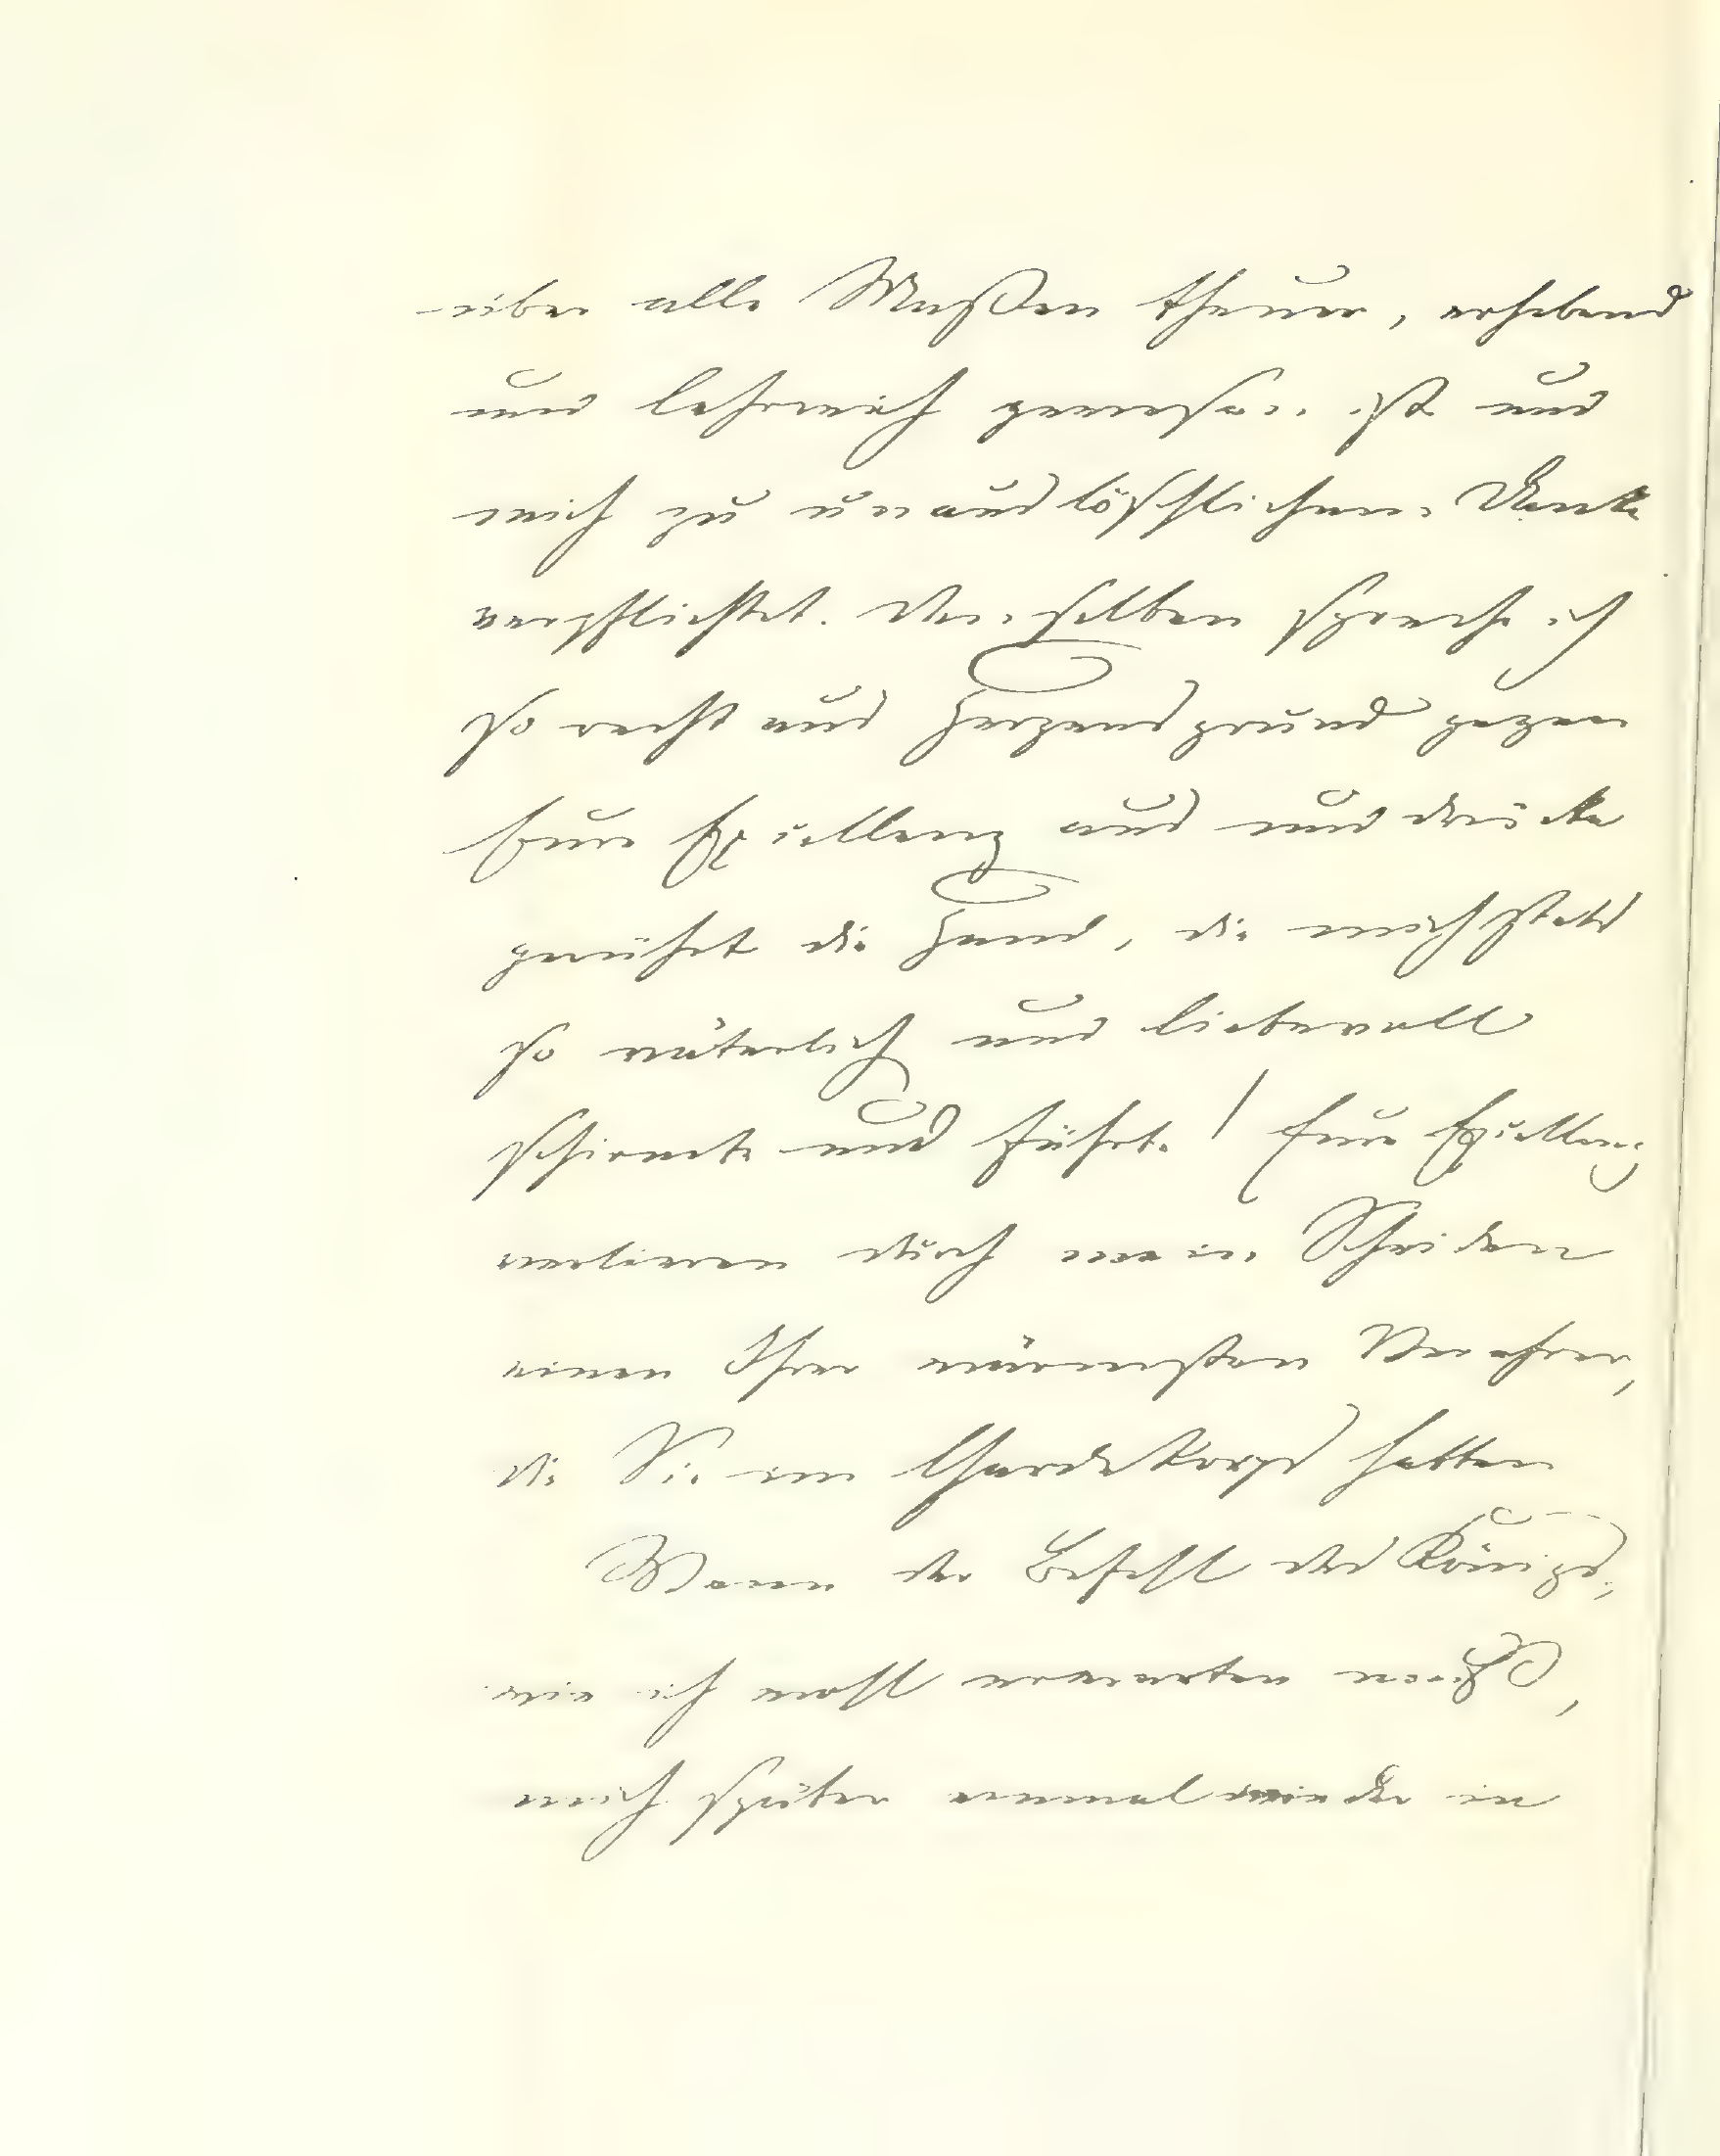 über alle Maßen theuer, erhebend
und lehrreich gewesen ist und
mich zu unauslöschlichem Danke
verpflichtet. Denselben spreche ich
so recht aus Herzensgrund gegen
Eure Exzellenz aus und drücke
gerührt die Hand, die mich stets
so väterlich und liebevoll
schirmte und führte! Eure Exzellenz
verlieren durch mein Scheiden
einen Ihrer wärmsten Verehrer,
die Sie im Gardekorps hatten
Wenn der Befehl des Königs,
wie ich wohl erwarten muß,
mich später einmal wieder in